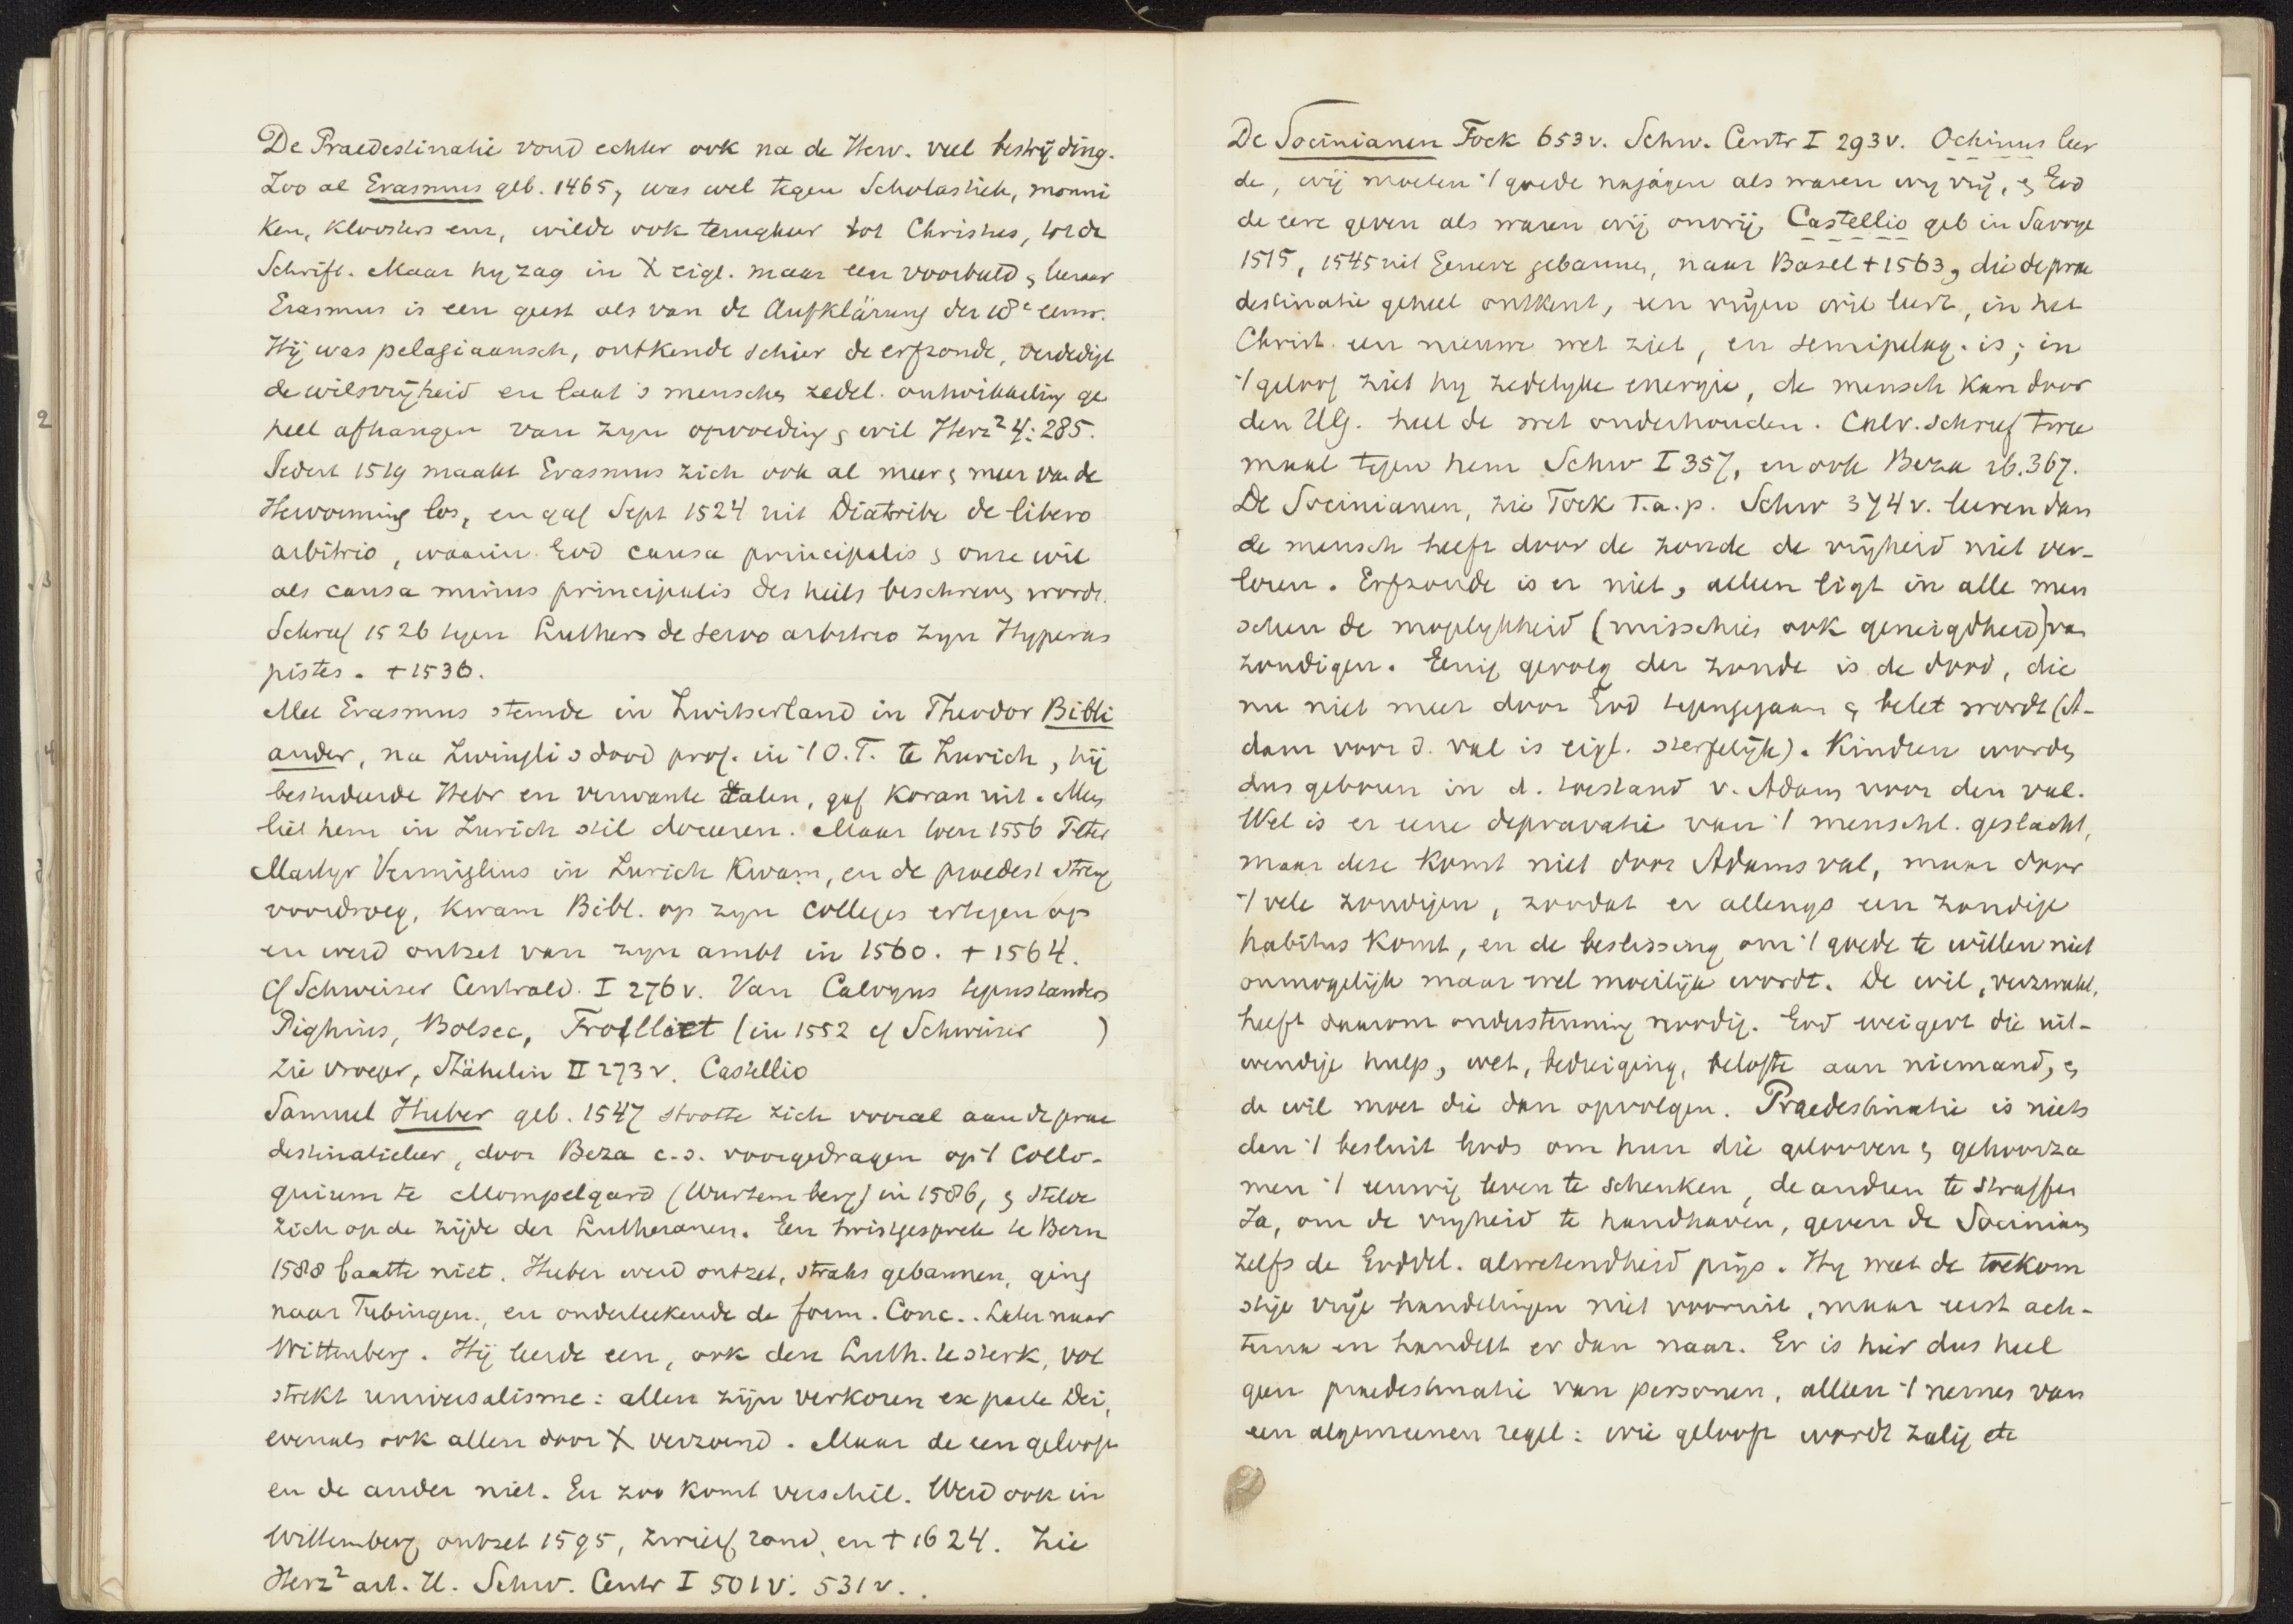 De Praedestinatie vond echter ook na de Herv. veel bestrijding.
Zoo al Erasmus geb. 1465, was wel tegen Scholastiek, monni
ken, kloosters enz, wilde ook terugkeer tot Christus, tot de
Schrift. Maar hy zag in X eigl. maar een voorbeeld & leeraar
Erasmus is een geest als van de Aufklärung der 18e eeuw.
Hij was pelagiaansch, ontkende schier de erfzonde, verdedigt
de wilsvrijheid en laat 's menschen zedel. ontwikkeling ge
heel afhangen van zyn opvoeding & wil Herz² 4: 285.
Sedert 1519 maakt Erasmus zich ook al meer & meer van de
Hervorming los, en gaf Sept 1524 uit Diatribe de libero
arbitrio, waarin God causa principalis & onze wil
als causa minus principalis des heils beschreven wordt.
Schreef 1526 tegen Luthers de servo arbitrio zyn Hyperas
pistes. + 1536.
Met Erasmus stemde in Zwitserland in Theodor Bibli
ander, na Zwingli's dood prof. in 't O.T. te Zurich, hij
bestudeerde Hebr en verwante talen, gaf Koran uit. Men
liet hem in Zurich stil doceeren. Maar toen 1556 Peter
Martyr Vermiglius in Zurich kwam, en de praedest streng
voordroeg, kwam Bibl. op zyn colleges ertegen op
en werd ontzet van zyn ambt in 1560. + 1564.
cf Schweizer Centrald. I 276 v. Van Calvyns tegenstanders
Pighius, Bolsec, Trolliet (in 1552 cf Schweizer )
zie vroeger, Stähelin II 273 v. Castellio
Samuel Huber geb. 1547 stootte zich vooral aan de prae
destinatieleer, door Beza c.s. voorgedragen op 't Collo-
quium te Mompelgard (Wurtemberg) in 1586, & stelde
zich op de zijde der Lutheranen. Een twistgesprek te Bern
1588 baatte niet. Huber werd ontzet, straks gebannen, ging
naar Tubingen, en onderteekende de form. Conc.. Later naar
Wittenberg. Hij leerde een, ook den Luth. te sterk, vol
strekt universalisme: allen zijn verkoren ex parte Dei,
evenals ook allen door X verzoend. Maar de een gelooft
en de ander niet. En zoo komt verschil. Werd ook in
Wittenberg ontzet 1595, zwierf rond, en + 1624. Zie
Herz² art. H. Schw. Centr I 501 v. 531 v..
De Socinianen Fock 653 v. Schw. Centr I 293 v. Ochinus leer
de, wij moeten 't goede najagen als waren wy vrij, & God
de eere geven als waren wij onvrij, Castellio geb in Savoye
1515, 1545 uit Geneve gebannen, naar Basel + 1563, die de prae
destinatie geheel ontkent, een vrijen wil leert, in het
Christ. een nieuwe wet ziet, en semipelag. is; in
't geloof ziet hy zedelyke energie, de mensch kan door
den H.G. heel de wet onderhouden. Calv. schreef twee
maal tegen hem Schw I 357, en ook Beza ib. 367.
De Socinianen, zie Fock t.a.p. Schw 374 v. leeren dan
de mensch heeft door de zonde de vrijheid niet ver-
loren. Erfzonde is er niet, alleen ligt in alle men
schen de mogelykheid (misschien ook geneigdheid) van
zondigen. Eenig gevolg der zonde is de dood, die
nu niet meer door God tegengegaan & belet wordt (A-
dam voor d. val is eigl. sterfelijk). Kinderen worden
dus geboren in d. toestand v. Adam voor den val.
Wel is er eene depravatie van 't menschl. geslacht,
maar deze komt niet door Adams val, maar door
't vele zondigen, zoodat er allengs een zondige
habitus komt, en de beslissing om 't goede te willen niet
onmogelijk maar wel moeilijk wordt. De wil, verzwakt,
heeft daarom ondersteuning noodig. God weigert die uit-
wendige hulp, wet, bedreiging, belofte aan niemand, &
de wil moet die dan opvolgen. Praedestinatie is niets
dan 't besluit Gods om hun die gelooven & gehoorza
men 't eeuwig leven te schenken, de andren te straffen
Ja, om de vryheid te handhaven, geven de Socinianen
zelfs de Goddel. alwetendheid prijs. Hy weet de toekom
stige vrije handelingen niet vooruit, maar eerst ach-
terna en handelt er dan naar. Er is hier dus heel
geen praedestinatie van personen, alleen 't nemen van
een algemeenen regel: wie gelooft wordt zalig etc